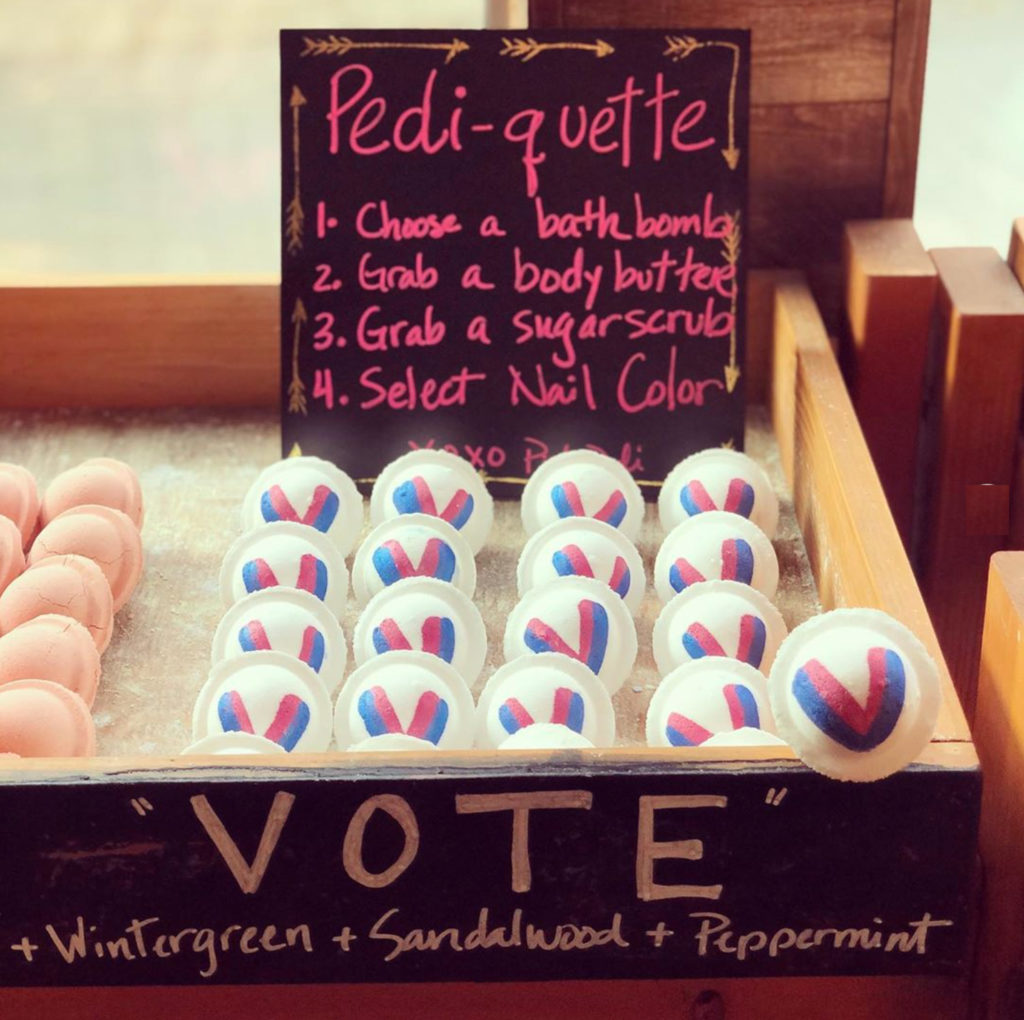 Pedi-quette
1. Choose a bath bomb
2. Grab a body butter
3. Grab a sugar scrub
4. Select Nail Color
XOXO
V V V V
V V V V
V V V V
V V V V
V
"VOTE"
+ Wintergreen + Sandalwood + Peppermint